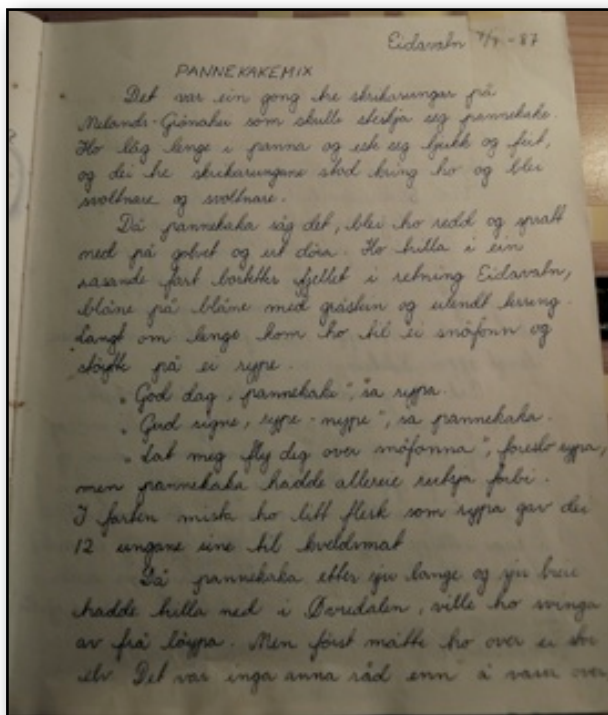 Eidavatn 7/7-87
PANNEKAKEMIX
Det var ein gong tre skrikarungar på
Melands-Grønahei som skulle steikja seg pannekake.
Ho låg lenge i panna og este seg tjukk og feit,
og dei tre skrikarungane stod kring ho og blei
svoltnare og svoltnare.
Då pannekaka såg det, blei ho redd og spratt
ned på golvet og ut døra. Ho trilla i ein
rasande fart bortetter fjellet i retning Eidavatn,
blåne på blåne med gråstein og ulendt terreng.
Langt om lenge kom ho til ei snøfonn og
støytte på ei rype.
"God dag, pannekake", sa rypa.
"Gud signe, rype-mype", sa pannekaka.
"Lat meg fly deg over snøfonna", foreslo rypa,
men pannekaka hadde allereie rutsja forbi.
I farten mista ho litt flesk som rypa gav dei
12 ungane sine til kveldsmat
Då pannekaka etter sju lange og sju breie
hadde trilla ned i Øvredalen, ville ho svinga
av frå løypa. Men først måtte ho over ei stor
elv. Det var inga anna råd enn å vassa over